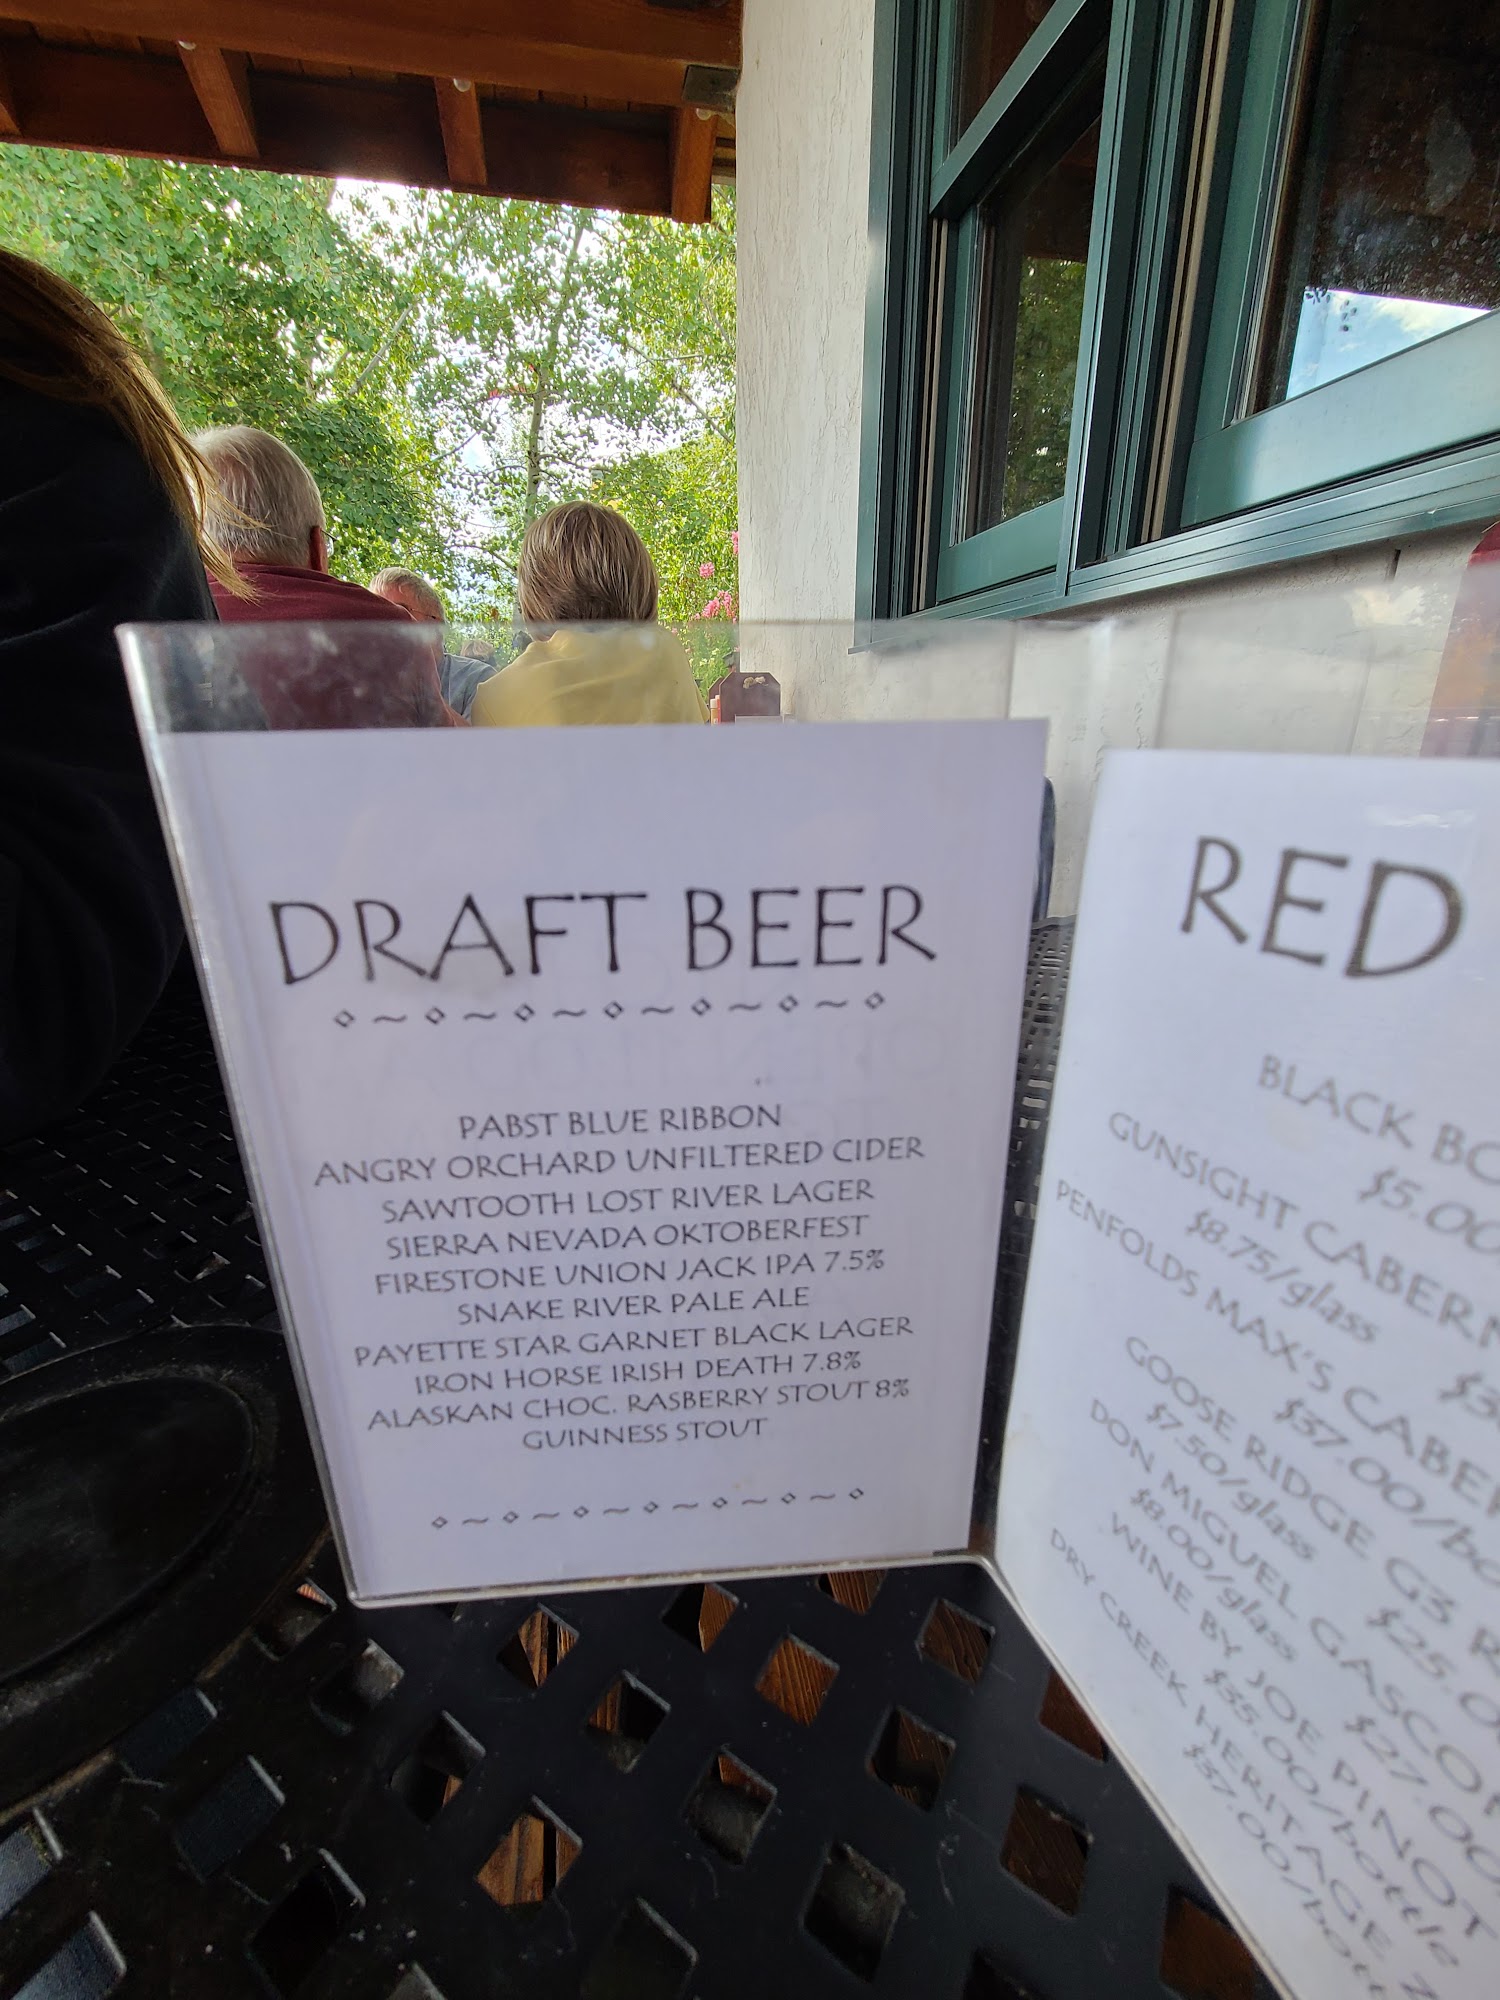 DRAFT BEER
PABST BLUE RIBBON
ANGRY ORCHARD UNFILTERED CIDER
SAWTOOTH LOST RIVER LAGER
SIERRA NEVADA OKTOBERFEST
FIRESTONE UNION JACK IPA 7.5%
SNAKE RIVER PALE ALE
PAYETTE STAR GARNET BLACK LAGER
IRON HORSE IRISH DEATH 7.8%
ALASKAN CHOC. RASBERRY STOUT 8%
GUINNESS STOUT
RED
BLACK BO
$5.00
GUNSIGHT CABERN
$8.75/glass $3
PENFOLDS MAX'S CABER
$37.00/bo
GOOSE RIDGE G3 R
$7.50/glass $25.0
DON MIGUEL GASCON
$8.00/glass $27.00
WINE BY JOE PINOT
$35.00/bottle
DRY CREEK HERITAGE Z
$37.00/bott